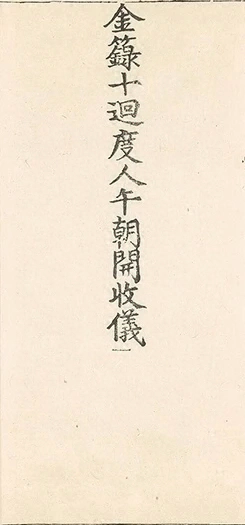 金籙十迴度人午朝開收儀